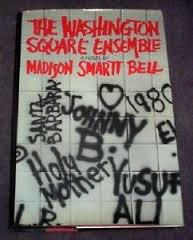 THE WASHINGTON
SQUARE ENSEMBLE
A NOVEL BY
MADISON SMARTT BELL
1980
SANTA
BARBARA
JOHNNY
B.
Holy
Mother!
YUSUF
ALI
L.R.